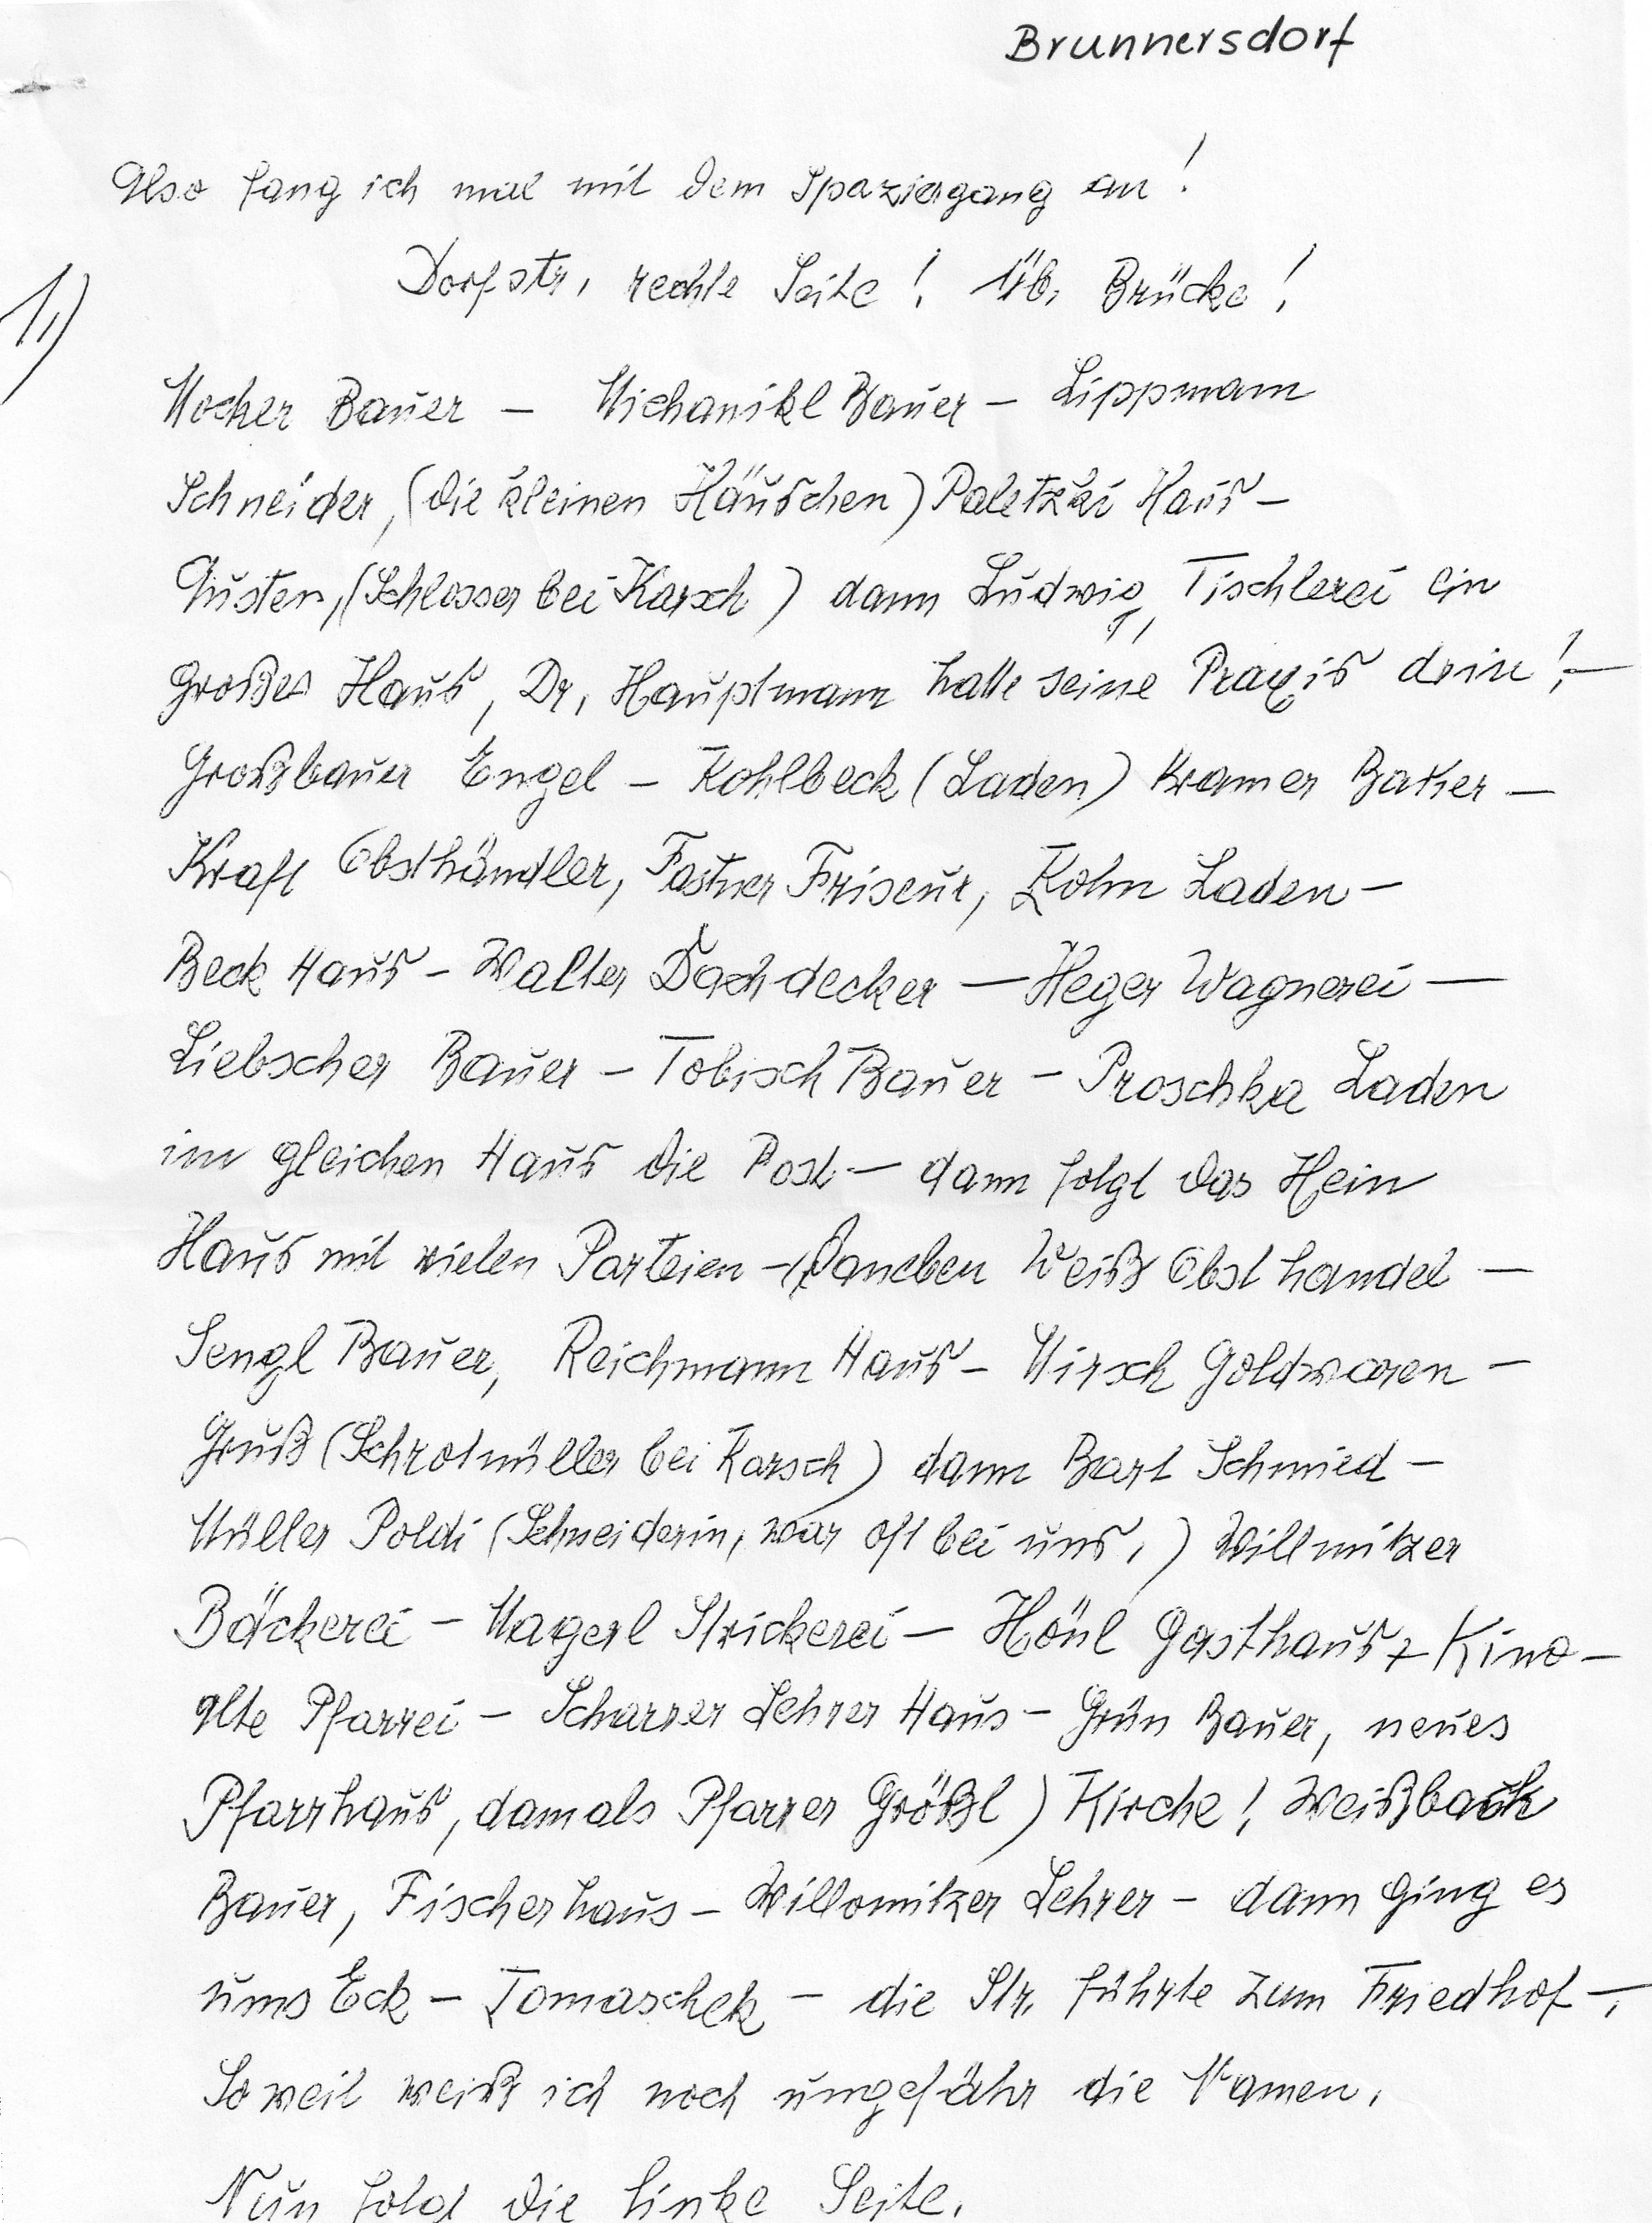 Brunnersdorf
Also fang ich mal mit dem Spaziergang an!
Dorfstr, rechte Seite! Üb, Brücke!
1,)
Mocker Bauer – Michanikl Bauer – Lippmann
Schneider, (die kleinen Häuschen) Paletzki Haus –
Guster, (Schlosser bei Karsch) dann Ludwig, Tischlerei ein
großes Haus, Dr, Hauptmann hatte seine Praxis drin! –
Großbauer Engel – Kohlbeck (Laden) Kramer Bauer –
Kraft Obsthändler, Fastner Friseur, Kohn Laden –
Beck Haus – Walter Dachdecker – Heger Wagnerei –
Liebscher Bauer – Tobisch Bauer – Proschka Laden
im gleichen Haus die Post – dann folgt das Hein
Haus mit vielen Parteien – (Daneben Weiß Obst handel –
Sengl Bauer, Reichmann Haus – Mirsch Goldwaren –
Gruß (Schrotmüller bei Karsch) dann Bart Schmied –
Müller Poldi (Schneiderin, war oft bei uns,) Willmitzer
Bäckerei – Magerl Strickerei – Hönl Gasthaus + Kino –
alte Pfarrei – Scharrer Lehrer Haus – Grün Bauer, neues
Pfarrhaus, damals Pfarrer Größl) Kirche! Weißbach
Bauer, Fischerhaus – Willomitzer Lehrer – dann ging es
ums Eck – Tomaschek – die Str, führte zum Friedhof –,
Soweit weiß ich noch ungefähr die Namen,
Nun folgt die linke Seite,